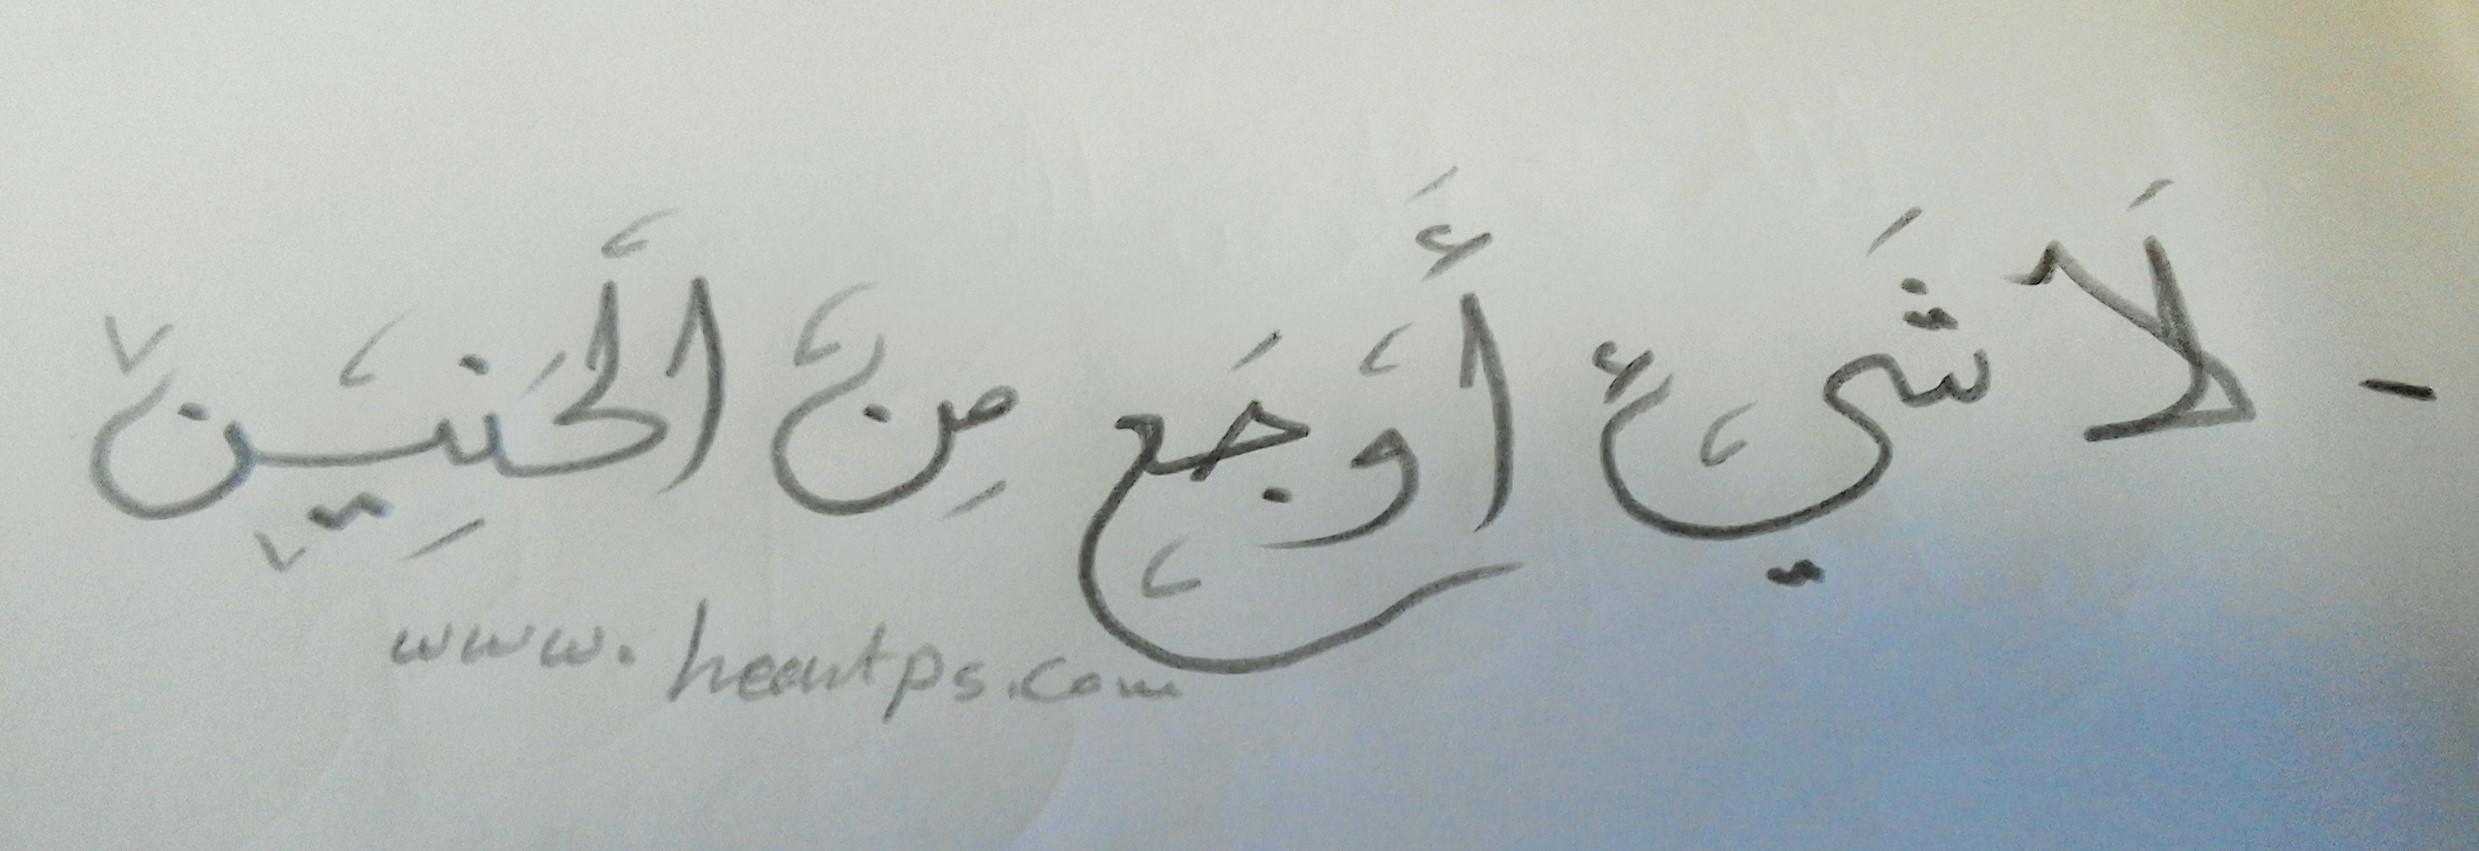 - لَا شَيء أَوجَع مِن الَحَنِين
www.heartps.com